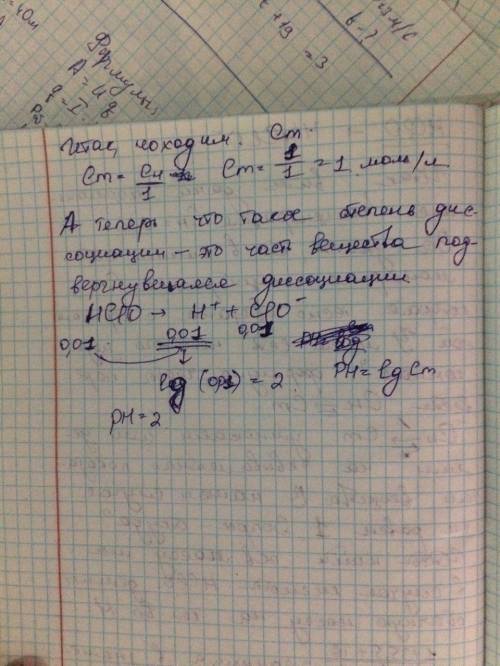 40м
t + 19 = 3
в - ?
Формулы:
A = U q
Итак, находим. Cm.
Cm = Cн/1 Cm = 1/1 = 1 моль/л
А теперь что такое степень дис-
социации – это часть вещества под-
вергнувшаяся диссоциации
HClO → H⁺ + ClO⁻
0,01 0,01 0,01
1
lg (0,01) = 2 PH = lg Cm
PH = 2